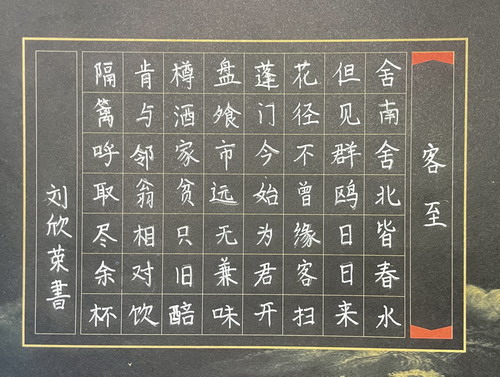 客至
舍南舍北皆春水
但见群鸥日日来
花径不曾缘客扫
蓬门今始为君开
盘飧市远无兼味
樽酒家贫只旧醅
肯与邻翁相对饮
隔篱呼取尽余杯
刘欣荣書